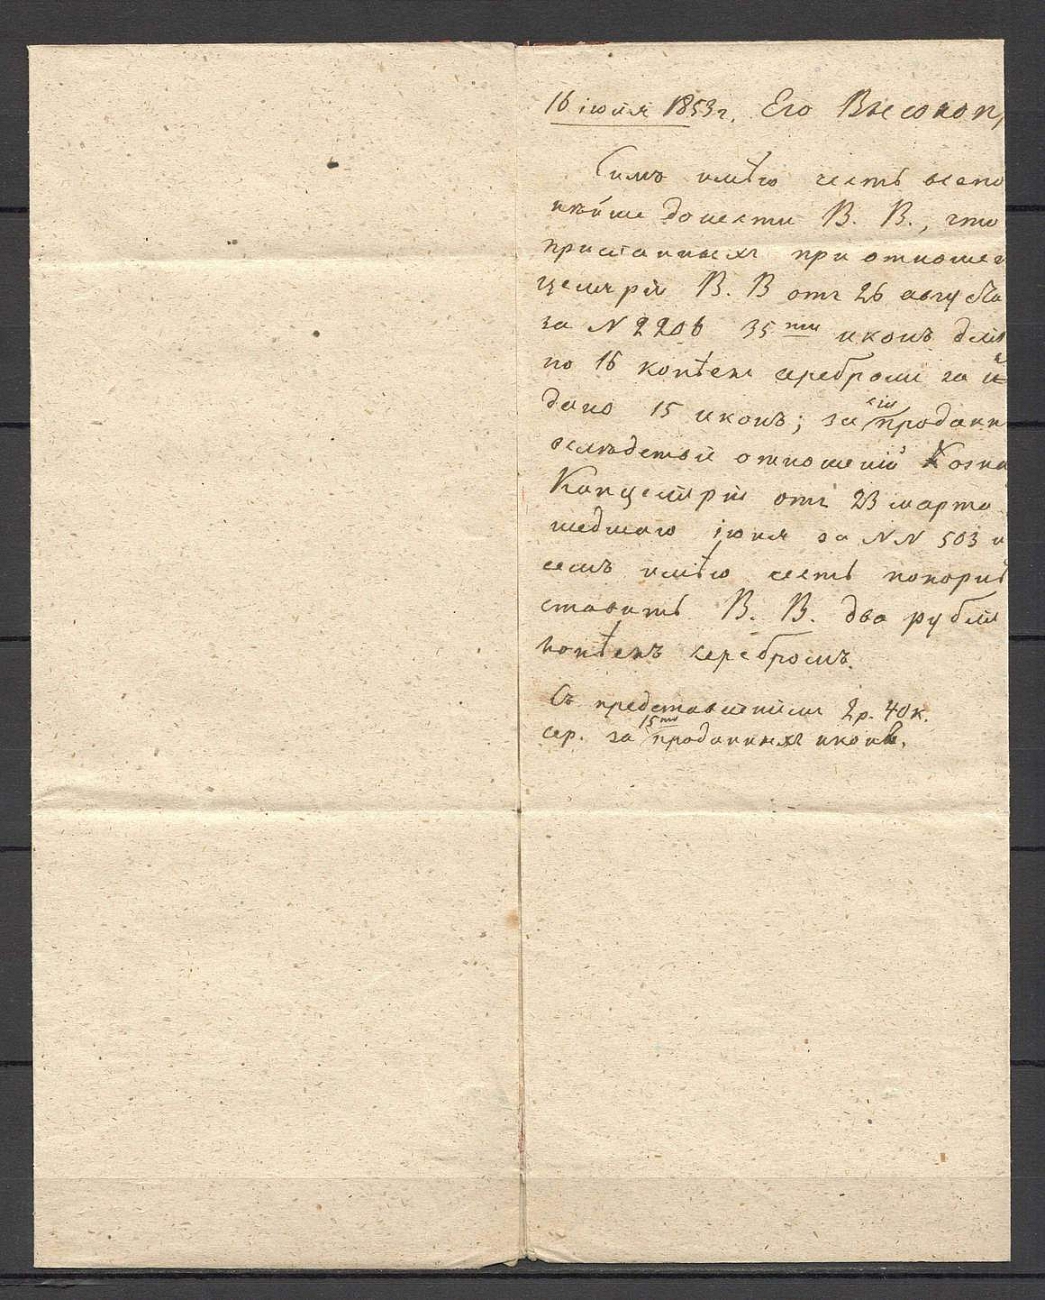 16 іюля 1853 г. Его Высокоп
Симъ имѣю честь всепо
нѣйше донести В. В., что
присланныхъ при отношен
целяріи В. В. отъ 26 августа
за N 2206 35ти иконъ для
по 16 копѣек серебромъ за и
дано 15 иконъ; за сіи проданн
вслѣдствіи отношеній
Канцеляріи отъ 23 марта
шедшаго іюня за NN 503 и
семъ имѣю честь покорнѣ
ставить В. В. два рубля
копѣекъ серебромъ.
Съ представленіемъ 2 р. 40 к.
сер. за 15ть проданныхъ иконъ.